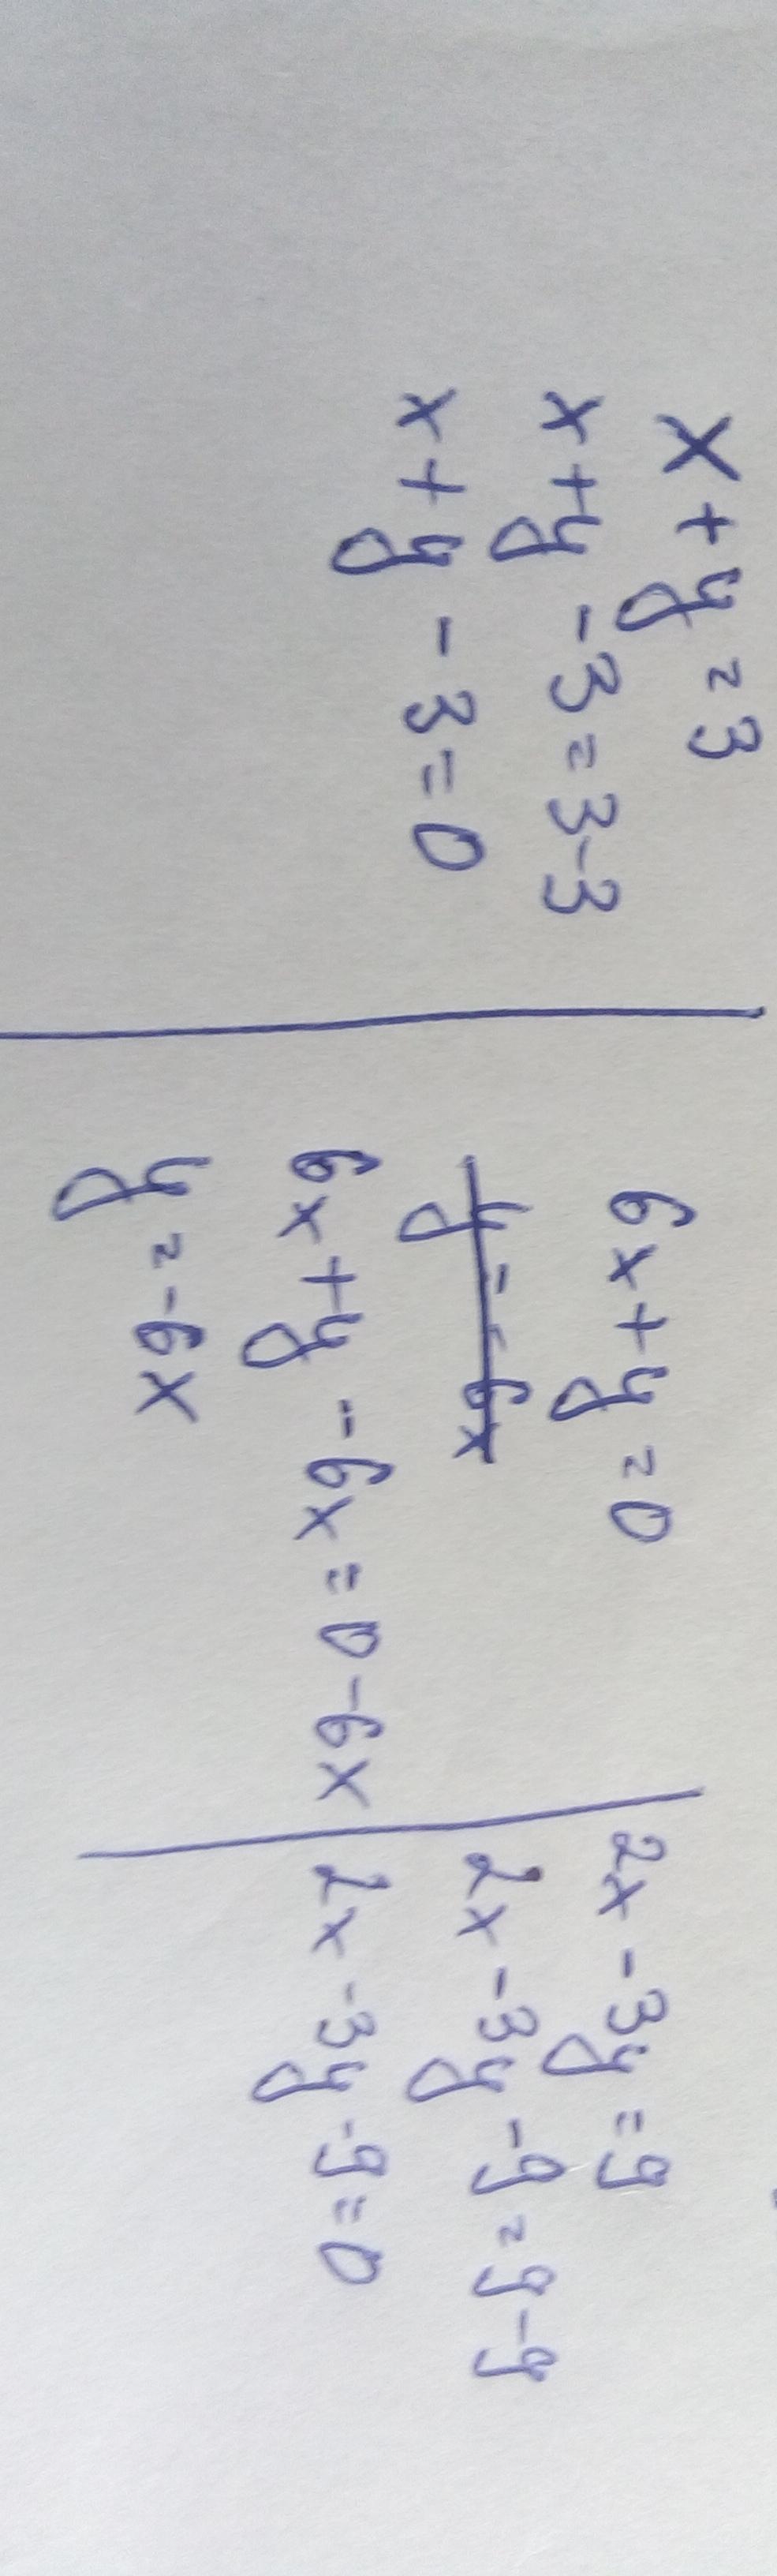 x + y = 3
x + y - 3 = 3-3
x + y - 3 = 0
6x + y = 0
y = -6x
6x + y - 6x = 0 - 6x
y = -6x
2x - 3y = 9
2x - 3y - 9 = 9 - 9
2x - 3y - 9 = 0